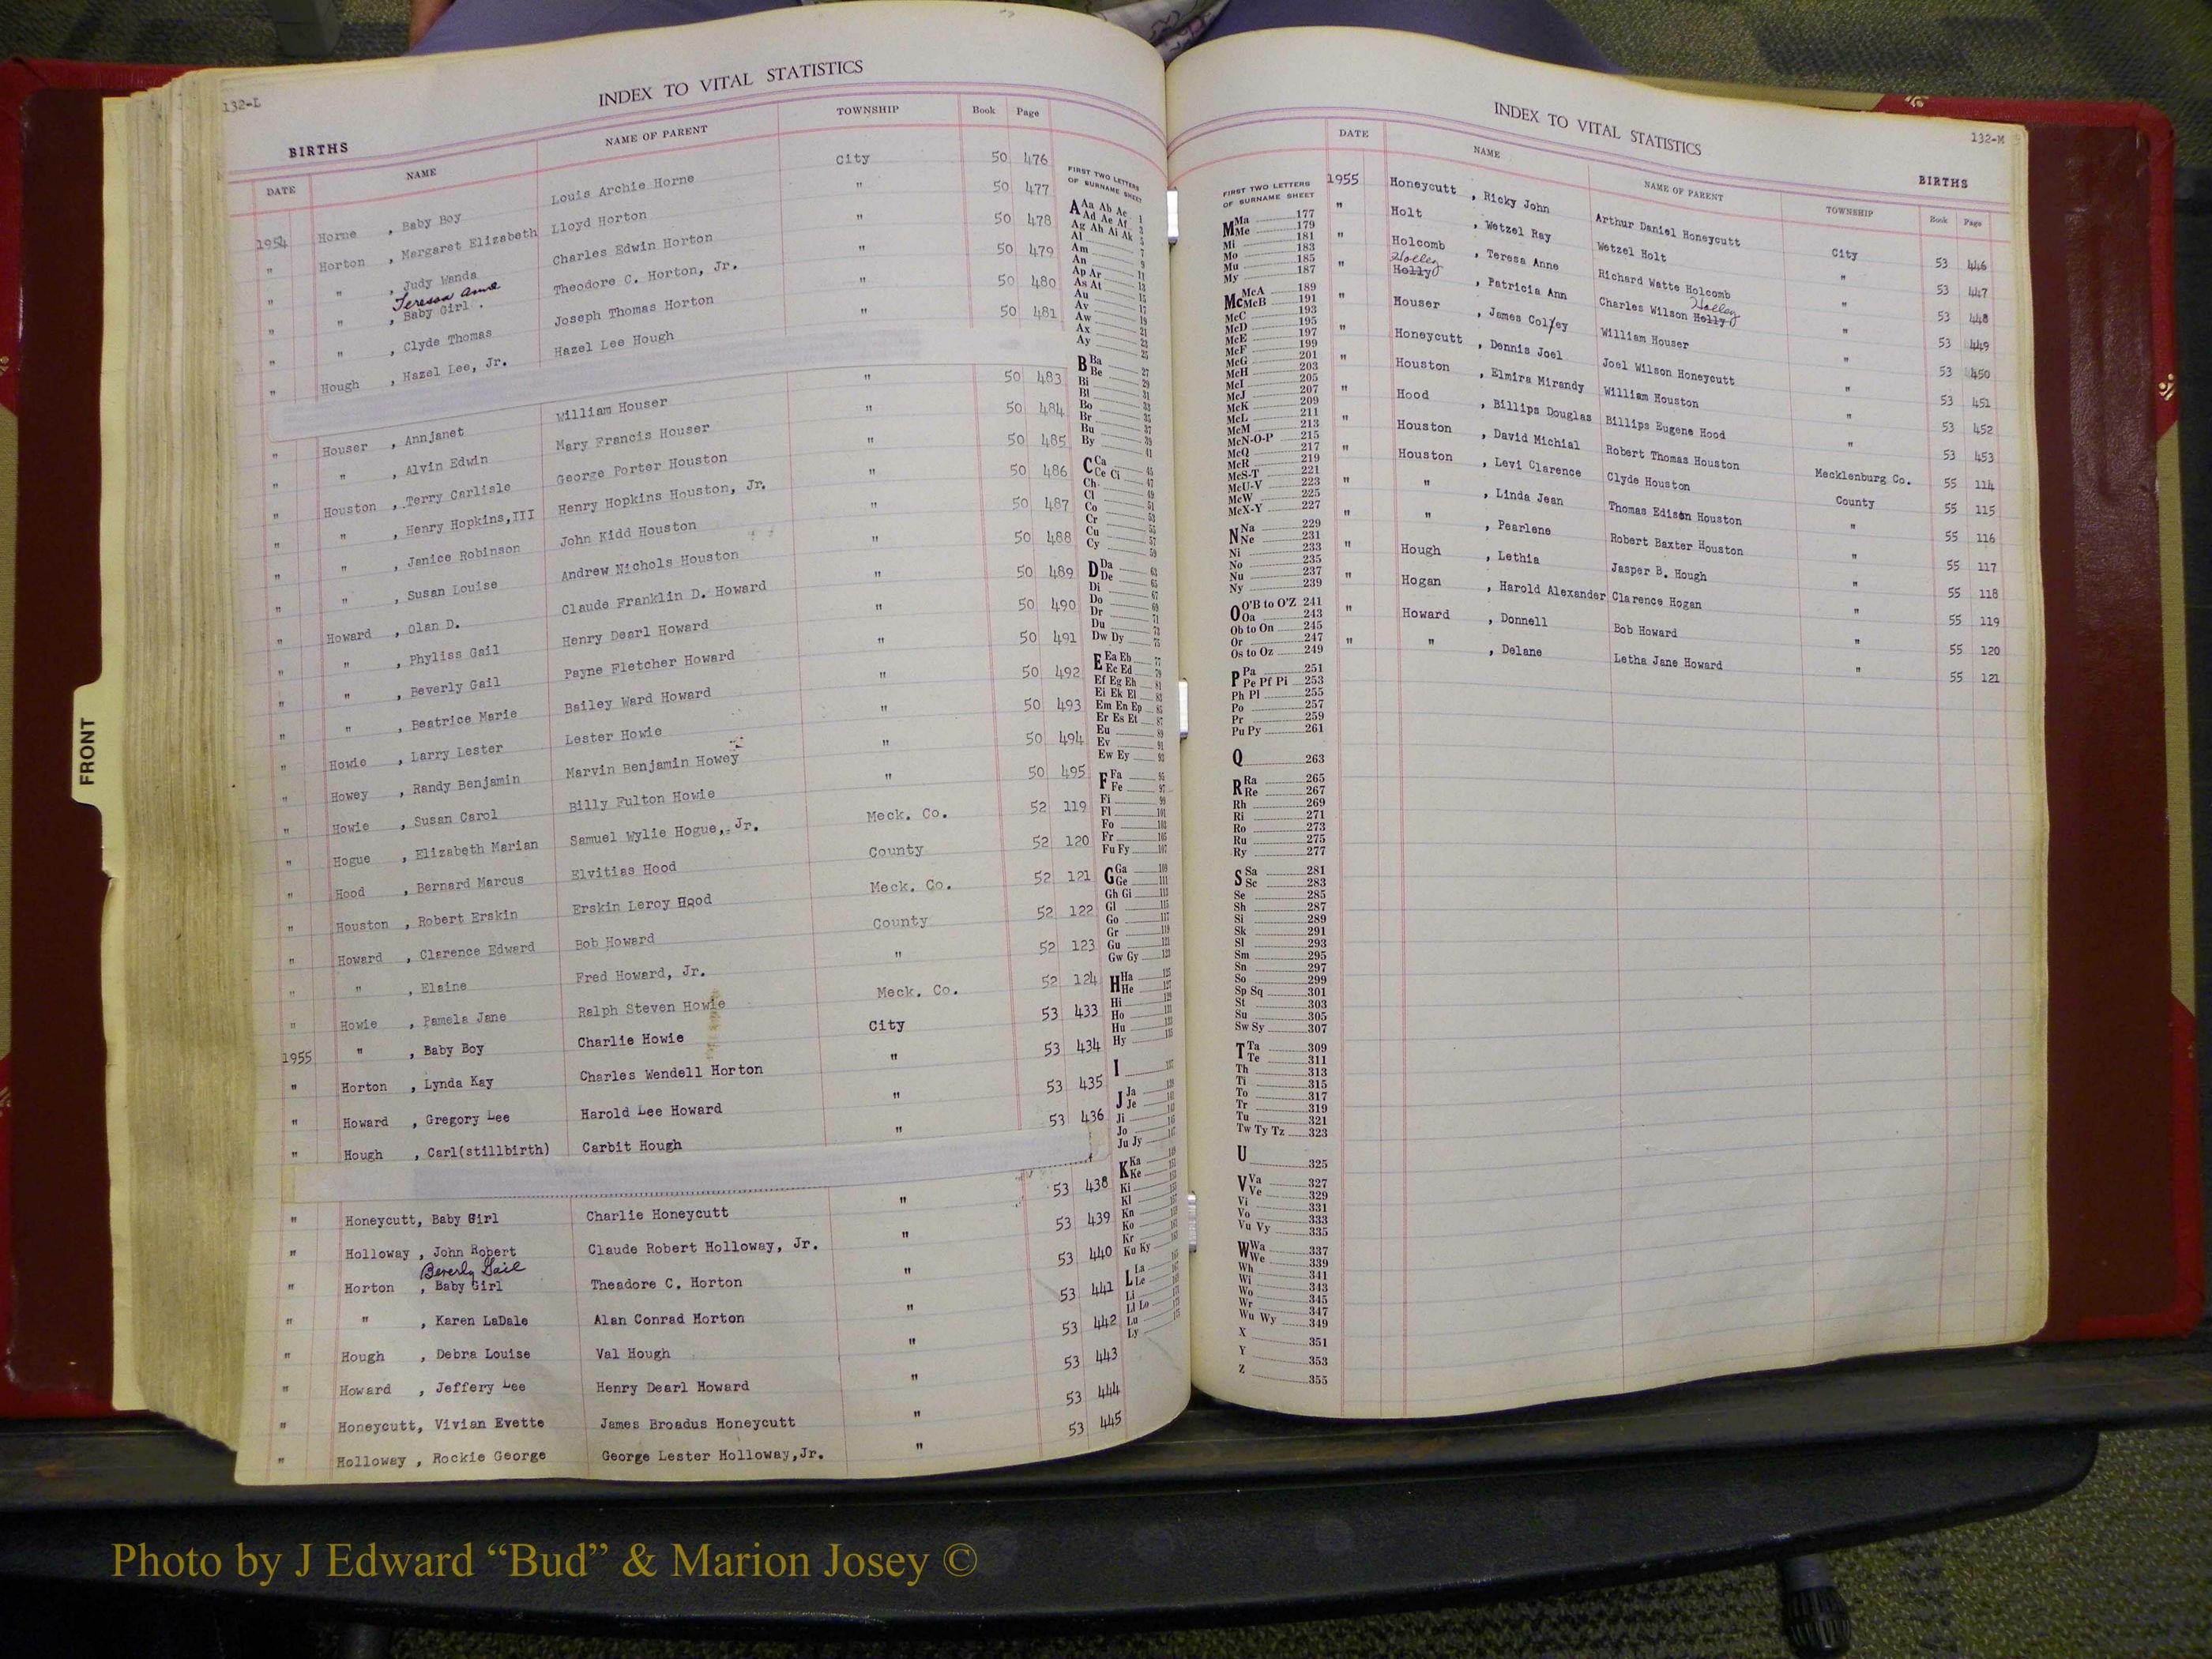 132-L
INDEX TO VITAL STATISTICS
BIRTHS
DATE NAME NAME OF PARENT TOWNSHIP Book Page
1954 Horne , Baby Boy Louis Archie Horne City 50 476
" Horton , Margaret Elizabeth Lloyd Horton " 50 477
" " , Judy Wanda Charles Edwin Horton " 50 478
Teresa Anne
" " , Baby Girl . Theodore C. Horton, Jr. " 50 479
" " , Clyde Thomas Joseph Thomas Horton " 50 480
" Hough , Hazel Lee, Jr. Hazel Lee Hough " 50 481
" Houser , Annjanet William Houser " 50 483
" " , Alvin Edwin Mary Francis Houser " 50 484
" Houston , Terry Carlisle George Porter Houston " 50 485
" " , Henry Hopkins,III Henry Hopkins Houston, Jr. " 50 486
" " , Janice Robinson John Kidd Houston " 50 487
" " , Susan Louise Andrew Nichols Houston " 50 488
" Howard , Olan D. Claude Franklin D. Howard " 50 489
" " , Phyliss Gail Henry Dearl Howard " 50 490
" " , Beverly Gail Payne Fletcher Howard " 50 491
" " , Beatrice Marie Bailey Ward Howard " 50 492
" Howie , Larry Lester Lester Howie " 50 493
" Howey , Randy Benjamin Marvin Benjamin Howey " 50 494
" Howie , Susan Carol Billy Fulton Howie " 50 495
" Hogue , Elizabeth Marian Samuel Wylie Hogue, Jr. Meck. Co. 52 119
" Hood , Bernard Marcus Elvitias Hood County 52 120
" Houston , Robert Erskin Erskin Leroy Hood Meck. Co. 52 121
" Howard , Clarence Edward Bob Howard County 52 122
" " , Elaine Fred Howard, Jr. " 52 123
" Howie , Pamela Jane Ralph Steven Howie Meck. Co. 52 124
1955 " , Baby Boy Charlie Howie City 53 433
" Horton , Lynda Kay Charles Wendell Horton " 53 434
" Howard , Gregory Lee Harold Lee Howard " 53 435
" Hough , Carl(stillbirth) Carbit Hough " 53 436
" Honeycutt, Baby Girl Charlie Honeycutt " 53 438
" Holloway , John Robert Claude Robert Holloway, Jr. " 53 439
Beverly Gail
" Horton , Baby Girl Theadore C. Horton " 53 440
" " , Karen LaDale Alan Conrad Horton " 53 441
" Hough , Debra Louise Val Hough " 53 442
" Howard , Jeffery Lee Henry Dearl Howard " 53 443
" Honeycutt, Vivian Evette James Broadus Honeycutt " 53 444
" Holloway , Rockie George George Lester Holloway,Jr. " 53 445
FRONT
FIRST TWO LETTERS
OF SURNAME SHEET
A Aa Ab Ac 1
Ad Ae Af 3
Ag Ah Ai Ak 5
Al 7
Am 9
An
Ap Ar 11
As At 13
Au 15
Av 17
Aw 19
Ax 21
Ay
B Ba 27
Be 29
Bi 31
Bl 33
Bo 35
Br 37
Bu 39
By 41
C Ca 45
Ce Ci 47
Ch
Cl
Co
Cr
Cu
Cy
D Da
De
Di
Do
Dr
Du
Dw Dy
E Ea Eb
Ec Ed
Ef Eg Eh
Ei Ek El
Em En Ep
Er Es Et
Eu
Ev
Ew Ey
F Fa
Fe
Fi
Fl
Fo
Fr
Fu Fy
G Ga
Ge
Gh Gi
Gl
Go
Gr
Gu
Gw Gy
H Ha
He
Hi
Ho
Hu
Hy
I
J Ja
Je
Ji
Jo
Ju Jy
K Ka
Ke
Ki
Kl
Kn
Ko
Kr
Ku Ky
L La
Le
Li
Ll Lo
Lu
Ly
132-M
INDEX TO VITAL STATISTICS
BIRTHS
FIRST TWO LETTERS
OF SURNAME SHEET
M Ma 177
Me 179
Mi 181
Mo 183
Mu 185
My 187
Mc McA 189
McB 191
McC 193
McD 195
McE 197
McF 199
McG 201
McH 203
McI 205
McJ 207
McK 209
McL 211
McM 213
McN-O-P 215
McQ 217
McR 219
McS-T 221
McU-V 223
McW 225
McX-Y 227
N Na 229
Ne 231
Ni 233
No 235
Nu 237
Ny 239
O O'B to O'Z 241
Oa 243
Ob to On 245
Or 247
Os to Oz 249
P Pa 251
Pe Pf Pi 253
Ph Pl 255
Po 257
Pr 259
Pu Py 261
Q 263
R Ra 265
Re 267
Rh 269
Ri 271
Ro 273
Ru 275
Ry 277
S Sa 281
Sc 283
Se 285
Sh 287
Si 289
Sk 291
Sl 293
Sm 295
Sn 297
So 299
Sp Sq 301
St 303
Su 305
Sw Sy 307
T Ta 309
Te 311
Th 313
Ti 315
To 317
Tr 319
Tu 321
Tw Ty Tz 323
U 325
V Va 327
Ve 329
Vi 331
Vo 333
Vu Vy 335
W Wa 337
We 339
Wh 341
Wi 343
Wo 345
Wr 347
Wu Wy 349
X 351
Y 353
Z 355
DATE NAME NAME OF PARENT TOWNSHIP Book Page
1955 Honeycutt , Ricky John Arthur Daniel Honeycutt City 53 446
" Holt , Wetzel Ray Wetzel Holt " 53 447
" Holcomb , Teresa Anne Richard Watte Holcomb " 53 448
Holley Holley
" Holly , Patricia Ann Charles Wilson Holly " 53 449
" Houser , James Colfey William Houser " 53 450
" Honeycutt , Dennis Joel Joel Wilson Honeycutt " 53 451
" Houston , Elmira Mirandy William Houston " 53 452
" Hood , Billips Douglas Billips Eugene Hood " 53 453
" Houston , David Michial Robert Thomas Houston Mecklenburg Co. 55 114
" Houston , Levi Clarence Clyde Houston County 55 115
" " , Linda Jean Thomas Edison Houston " 55 116
" " , Pearlene Robert Baxter Houston " 55 117
" Hough , Lethia Jasper B. Hough " 55 118
" Hogan , Harold Alexander Clarence Hogan " 55 119
" Howard , Donnell Bob Howard " 55 120
" " , Delane Letha Jane Howard " 55 121
Photo by J Edward “Bud” & Marion Josey ©